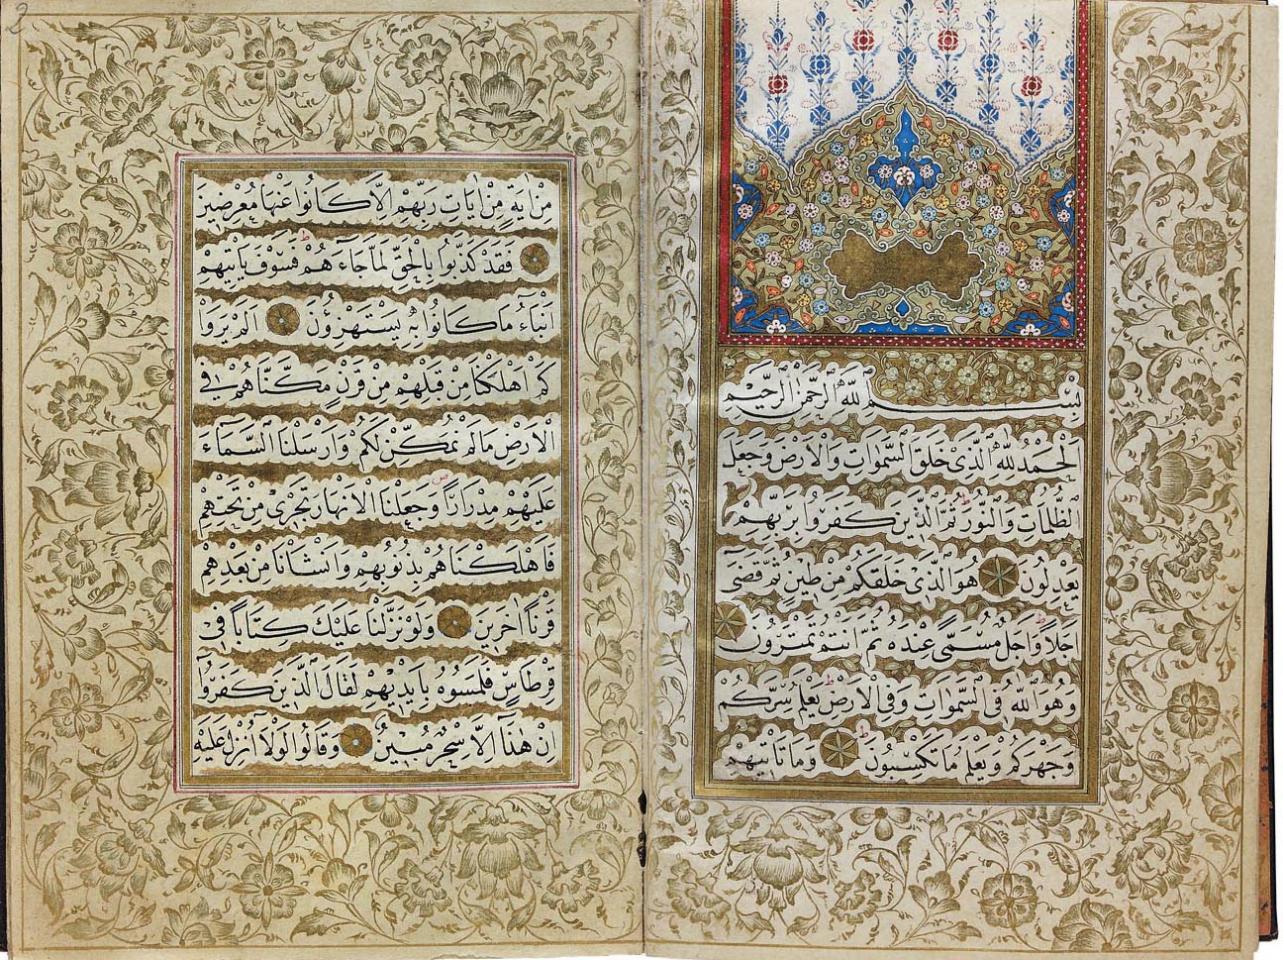 بِسْمِ اللّٰهِ الرَّحْمٰنِ الرَّحِيمِ
اَلْحَمْدُ لِلّٰهِ الَّذِى خَلَقَ السَّمٰوَاتِ وَالْاَرْضَ وَجَعَلَ
الظُّلُمَاتِ وَالنُّورَ ط ثُمَّ الَّذِينَ كَفَرُوا بِرَبِّهِمْ
يَعْدِلُونَ هُوَ الَّذِى خَلَقَكُمْ مِنْ طِينٍ ثُمَّ قَضٰى
اَجَلًا ط وَاَجَلٌ مُسَمًّى عِنْدَهُ ثُمَّ اَنْتُمْ تَمْتَرُونَ
وَهُوَ اللّٰهُ فِى السَّمٰوَاتِ وَفِى الْاَرْضِ ط يَعْلَمُ سِرَّكُمْ
وَجَهْرَكُمْ وَيَعْلَمُ مَا تَكْسِبُونَ وَمَا تَاْتِيهِمْ
مِنْ اٰيَةٍ مِنْ اٰيَاتِ رَبِّهِمْ اِلَّا كَانُوا عَنْهَا مُعْرِضِينَ
فَقَدْ كَذَّبُوا بِالْحَقِّ لَمَّا جَاءَهُمْ ط فَسَوْفَ يَاْتِيهِمْ
اَنْبَاءُ مَا كَانُوا بِهِ يَسْتَهْزِؤُنَ اَلَمْ يَرَوْا
كَمْ اَهْلَكْنَا مِنْ قَبْلِهِمْ مِنْ قَرْنٍ مَكَّنَّاهُمْ فِى
الْاَرْضِ مَا لَمْ نُمَكِّنْ لَكُمْ وَاَرْسَلْنَا السَّمَاءَ
عَلَيْهِمْ مِدْرَارًا ص وَجَعَلْنَا الْاَنْهَارَ تَجْرِى مِنْ تَحْتِهِمْ
فَاَهْلَكْنَاهُمْ بِذُنُوبِهِمْ وَاَنْشَاْنَا مِنْ بَعْدِهِمْ
قَرْنًا اٰخَرِينَ وَلَوْ نَزَّلْنَا عَلَيْكَ كِتَابًا فِى
قِرْطَاسٍ فَلَمَسُوهُ بِاَيْدِيهِمْ لَقَالَ الَّذِينَ كَفَرُوا
اِنْ هٰذَا اِلَّا سِحْرٌ مُبِينٌ وَقَالُوا لَوْلَا اُنْزِلَ عَلَيْهِ
2